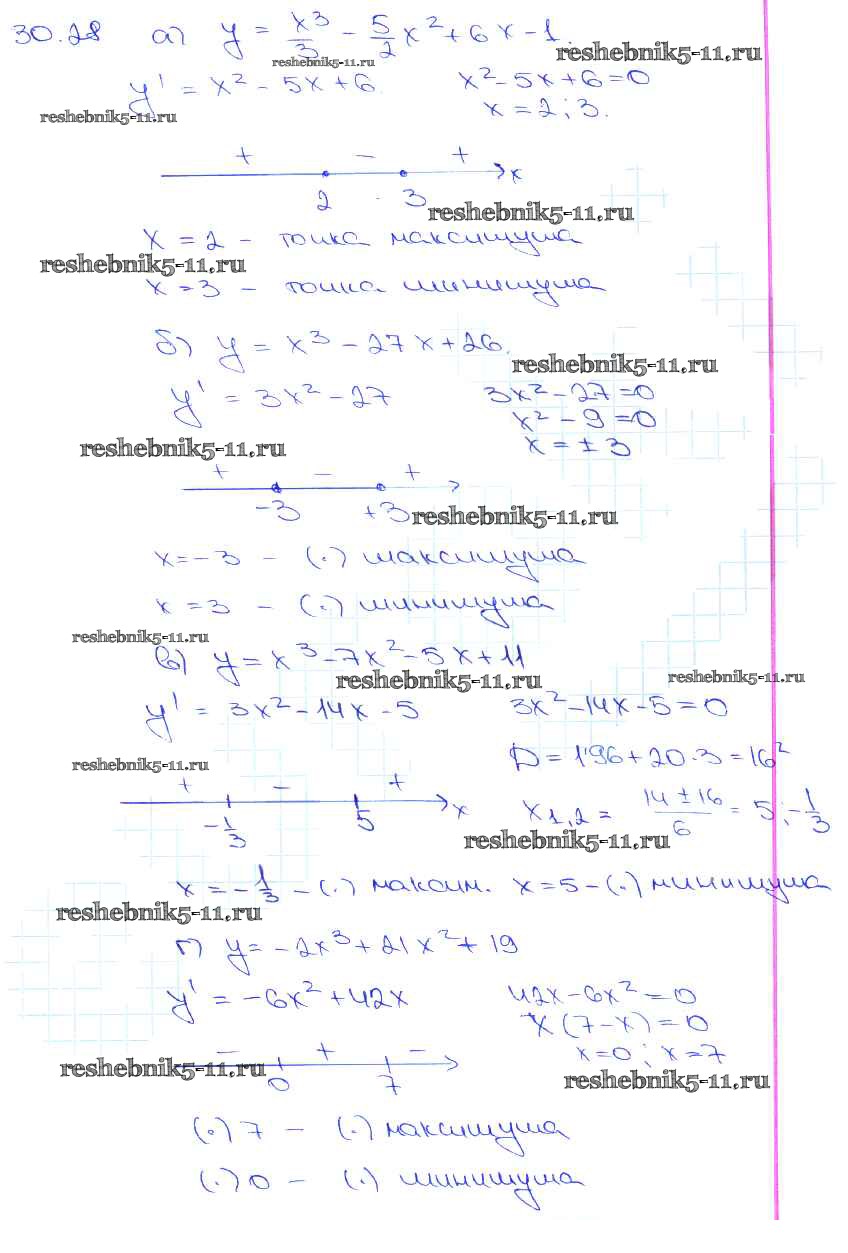 30.28 а) y = x³/3 - 5/2 x² + 6x - 1.
reshebnik5-11.ru
reshebnik5-11.ru
y' = x² - 5x + 6. x² - 5x + 6 = 0
reshebnik5-11.ru
x = 2; 3.
+ - + x
2 3
reshebnik5-11.ru
x = 2 - точка максимума
reshebnik5-11.ru
x = 3 - точка минимума
б) y = x³ - 27x + 26.
reshebnik5-11.ru
y' = 3x² - 27 3x² - 27 = 0
x² - 9 = 0
reshebnik5-11.ru x = ± 3
+ - +
-3 +3
reshebnik5-11.ru
x = -3 - (.) максимума
x = 3 - (.) минимума
reshebnik5-11.ru
в) y = x³ - 7x² - 5x + 11
reshebnik5-11.ru reshebnik5-11.ru
y' = 3x² - 14x - 5 3x² - 14x - 5 = 0
reshebnik5-11.ru D = 196 + 20·3 = 16²
+ - + x
-1/3 5 x1,2 = (14 ± 16)/6 = 5; -1/3
reshebnik5-11.ru
x = -1/3 - (.) максим. x = 5 - (.) минимума
reshebnik5-11.ru
г) y = -2x³ + 21x² + 19
y' = -6x² + 42x 42x - 6x² = 0
x(7 - x) = 0
- + - x = 0; x = 7
reshebnik5-11.ru 0 7 reshebnik5-11.ru
(.) 7 - (.) максимума
(.) 0 - (.) минимума